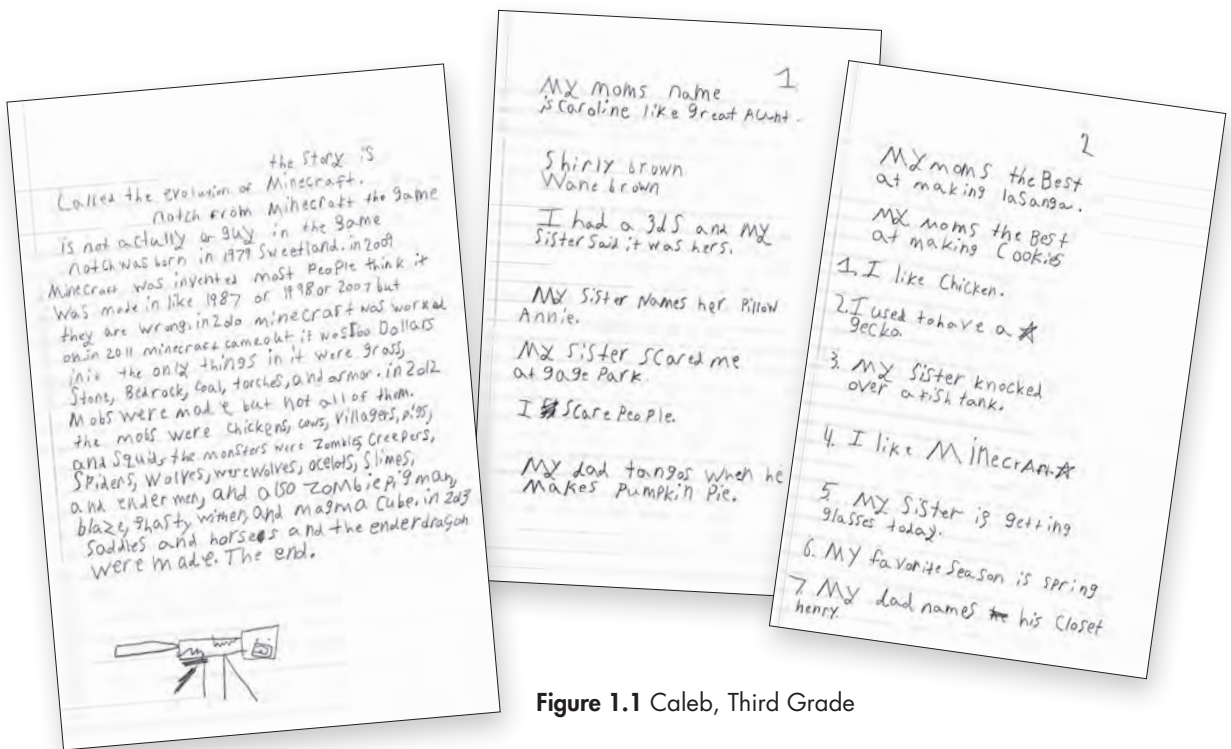 the story is
Called the evolution of Minecraft.
notch from Minecraft the game
is not actully a guy in the game
notch was born in 1979 Sweetland. in 2009
Minecraft was invented most People think it
was made in like 1987 or 1998 or 2007 but
they are wrong. in 2010 minecraft was worked
on. in 2011 minecraft came out it was Dollars
init the only things in it were grass,
Stone, Bedrock, Coal, torches, and armor. in 2012
Mobs were made but not all of them.
the mobs were Chickens, cows, villagers, pigs,
and Squids the monsters were Zombies, Creepers,
Spiders, Wolves, werewolves, ocelots, Slimes,
and endermen, and also Zombie pigman,
blaze, ghasty wither, and magma cube. in 2013
Saddles and horses and the enderdragon
were made. The end.
1
My moms name
is Caroline like great Aunt.
Shirly brown
Wane brown
I had a 3dS and My
Sister Said it was hers.
My Sister Names her Pillow
Annie.
My Sister Scared me
at gage Park.
I Scare People.
My dad tangos when he
Makes Pumpkin Pie.
2
My moms the Best
at making laSanga.
My moms the Best
at making Cookies
1. I like Chicken.
2. I used to have a
gecko.
3. My Sister knocked
over a fish tank.
4. I like Minecraft
5. My Sister is getting
glasses today.
6. My favorite Season is spring
7. My dad names his Closet
henry.
Figure 1.1 Caleb, Third Grade